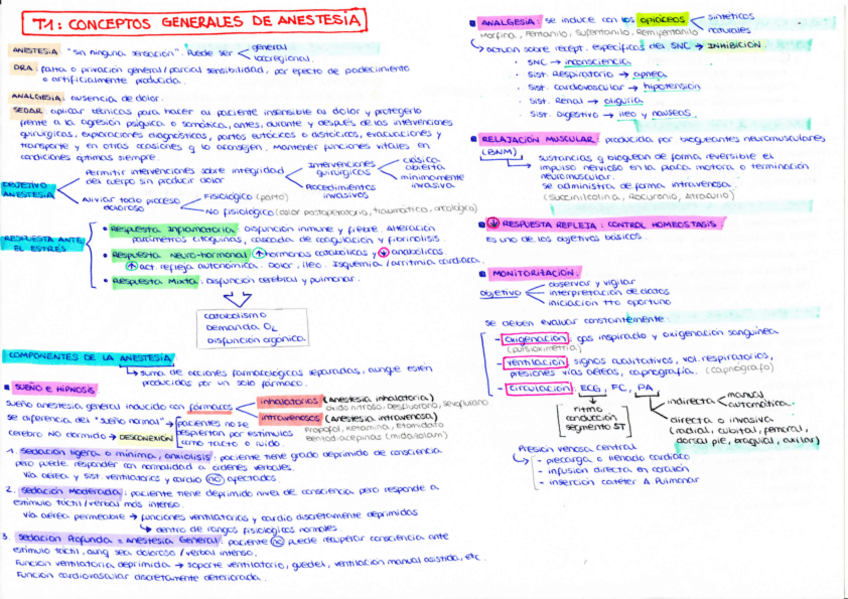 T1: CONCEPTOS GENERALES DE ANESTESIA
ANESTESIA "sin ninguna sensacion". Puede ser
general
locorregional.
DRA: falta o privación general/parcial sensibilidad, por efecto de padecimiento
o artificialmente producida.
ANALGESIA: ausencia de dolor.
SEDAR: aplicar técnicas para hacer al paciente insensible al dolor y protegerlo
frente a la agresión psíquica o somática, antes, durante y después de las intervenciones
quirúrgicas, exploraciones diagnósticas, partos eutócicos o distócicos, evacuaciones y
transporte y en otras ocasiones q lo aconsejen. Mantener funciones vitales en
condiciones óptimas siempre.
OBJETIVO
ANESTESIA
Permitir intervenciones sobre integridad
del cuerpo sin producir dolor
Intervenciones
quirúrgicas
clásica
abierta
minimamente
invasiva
Procedimientos
invasivos
Aliviar todo proceso
doloroso
Fisiológico (parto)
No fisiológico (dolor postoperatorio, traumático, oncológico)
RESPUESTA ANTE
EL ESTRÉS
• Respuesta Inflamatoria: disfunción inmune y fiebre. Alteración
parámetros citoquinas, cascada de coagulación y fibrinolisis.
• Respuesta Neuro-hormonal ↑ hormonas catabólicas y ↓ anabólicas.
↑ act. refleja autonómica. Dolor, ileo. Isquemia/arritmia cardiaca.
• Respuesta Mixta: disfunción cerebral y pulmonar.
catabolismo
demanda O2
disfunción orgánica.
COMPONENTES DE LA ANESTESIA
↳ suma de acciones farmacológicas separadas, aunque estén
producidas por un solo fármaco.
■ SUEÑO E HIPNOSIS
sueño anestesia general inducido con fármacos
inhalatorios (Anestesia inhalatoria)
óxido nitroso, Desflurano, sevoflurano
intravenosos (Anestesia intravenosa)
Propofol, Ketamina, Etomidato
Benzodiacepinas (midazolam)
se diferencia del "sueño normal" → pacientes no se
despiertan por estímulos
como tacto o ruido.
cerebro NO dormido → DESCONEXIÓN
1. sedación ligera o mínima, ansiolisis: paciente tiene grado deprimido de consciencia
pero puede responder con normalidad a órdenes verbales.
Vía aérea y sist ventilatorios y cardio no afectados.
2. sedación Moderada: paciente tiene deprimido nivel de consciencia pero responde a
estímulo táctil/verbal más intenso.
vía aérea permeable → funciones ventilatorias y cardio discretamente deprimidas
↳ dentro de rangos fisiológicos normales.
3. sedación Profunda = Anestesia General: paciente no puede recuperar consciencia ante
estímulo táctil, aunq sea doloroso/verbal intenso.
Función ventilatoria deprimida → soporte ventilatorio, guedel, ventilación manual asistida, etc.
Función cardiovascular discretamente deteriorada.
■ ANALGESIA: se induce con los opiáceos
sintéticos
naturales
Morfina, Fentanilo, Sufentanilo, Remifentanilo
↳ actúan sobre recept. específicos del SNC → INHIBICIÓN.
· SNC → inconsciencia
· Sist. Respiratorio → apnea
· Sist. cardiovascular → hipotensión
· Sist. Renal → oliguria
· Sist. Digestivo → íleo y náuseas.
■ RELAJACIÓN MUSCULAR: producida por bloqueantes neuromusculares
(BNM)
sustancias q bloquean de forma reversible el
impulso nervioso en la placa motora o terminación
neuromuscular.
se administra de forma intravenosa.
(succinilcolina, Rocuronio, Atracurio)
■ ↓ RESPUESTA REFLEJA: CONTROL HOMEOSTASIS
es uno de los objetivos básicos.
■ MONITORIZACIÓN:
objetivo
observar y vigilar
interpretación de datos
iniciación tto oportuno
se deben evaluar constantemente:
- oxigenación: gas inspirado y oxigenación sanguínea
(pulsioximetría)
- ventilación: signos cualitativos, vol. respiratorios,
presiones vías aéreas, capnografía. (capnógrafo)
- circulación: ECG, FC, PA
ritmo
conducción
segmento ST
indirecta
manual
automática.
directa o invasiva
(radial, cubital, femoral,
dorsal pie, braquial, axilar)
Presión venosa central
↳ - precarga o llenado cardíaco
- infusión directa en corazón
- inserción catéter A Pulmonar